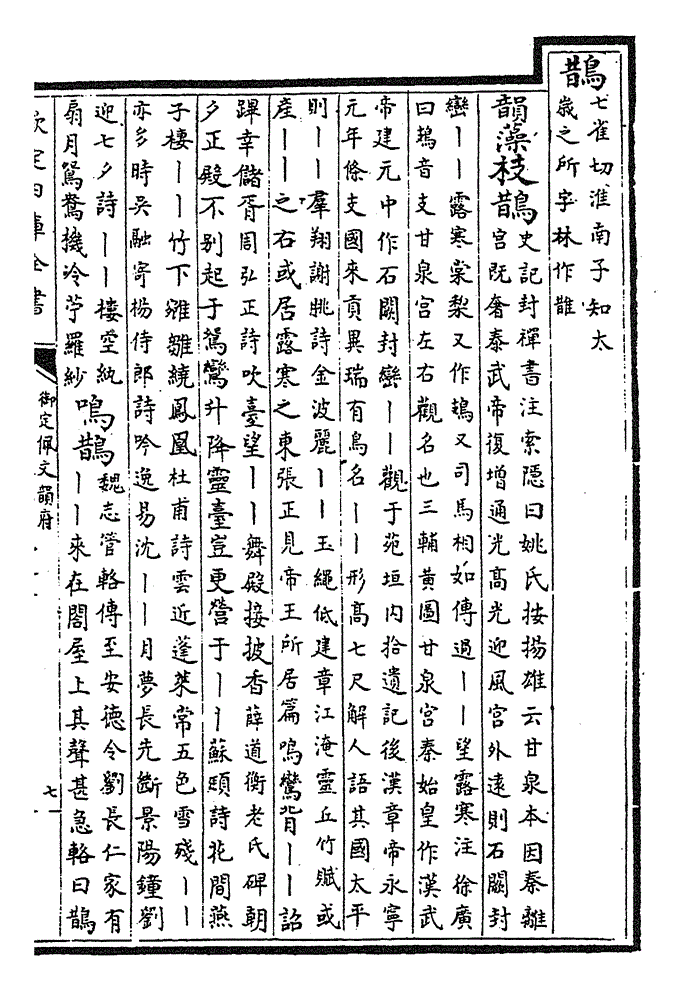 鵲七雀切淮南子知太
歲之所字林作䧿
韻藻枝鵲史記封禪書注索隱曰姚氏按揚雄云甘泉本因秦離
宮既奢泰武帝復增通光高光迎風宮外遠則石關封
巒丨丨露寒棠梨又作鳷又司馬相如傳過丨丨望露寒注徐廣
曰鳷音支甘泉宮左右觀名也三輔黃圖甘泉宮秦始皇作漢武
帝建元中作石闕封巒丨丨觀于苑垣內拾遺記後漢章帝永寧
元年條支國來貢異瑞有鳥名丨丨形髙七尺解人語其國太平
則丨丨羣翔謝眺詩金波麗丨丨玉繩低建章江淹靈丘竹賦或
産丨丨之右或居露寒之東張正見帝王所居篇鳴鸞背丨丨詔
蹕幸儲胥周弘正詩吹臺望丨丨舞殿接披香薛道衡老氏碑朝
夕正殿不别起于鴛鸞升降靈臺豈更營于丨丨蘇頲詩花間燕
子棲丨丨竹下雛雛繞鳳凰杜甫詩雲近蓬萊常五色雪殘丨丨
亦多時吳融寄楊侍郎詩吟逸易沈丨丨月夢長先斷景陽鐘劉
迎七夕詩丨丨樓空紈扇月鴛鴦機冷苧羅紗鳴鵲魏志管輅傳至安德令劉長仁家有
丨丨來在閣屋上其聲甚急輅曰鵲
欽定四庫全書
御定佩文韻府
七